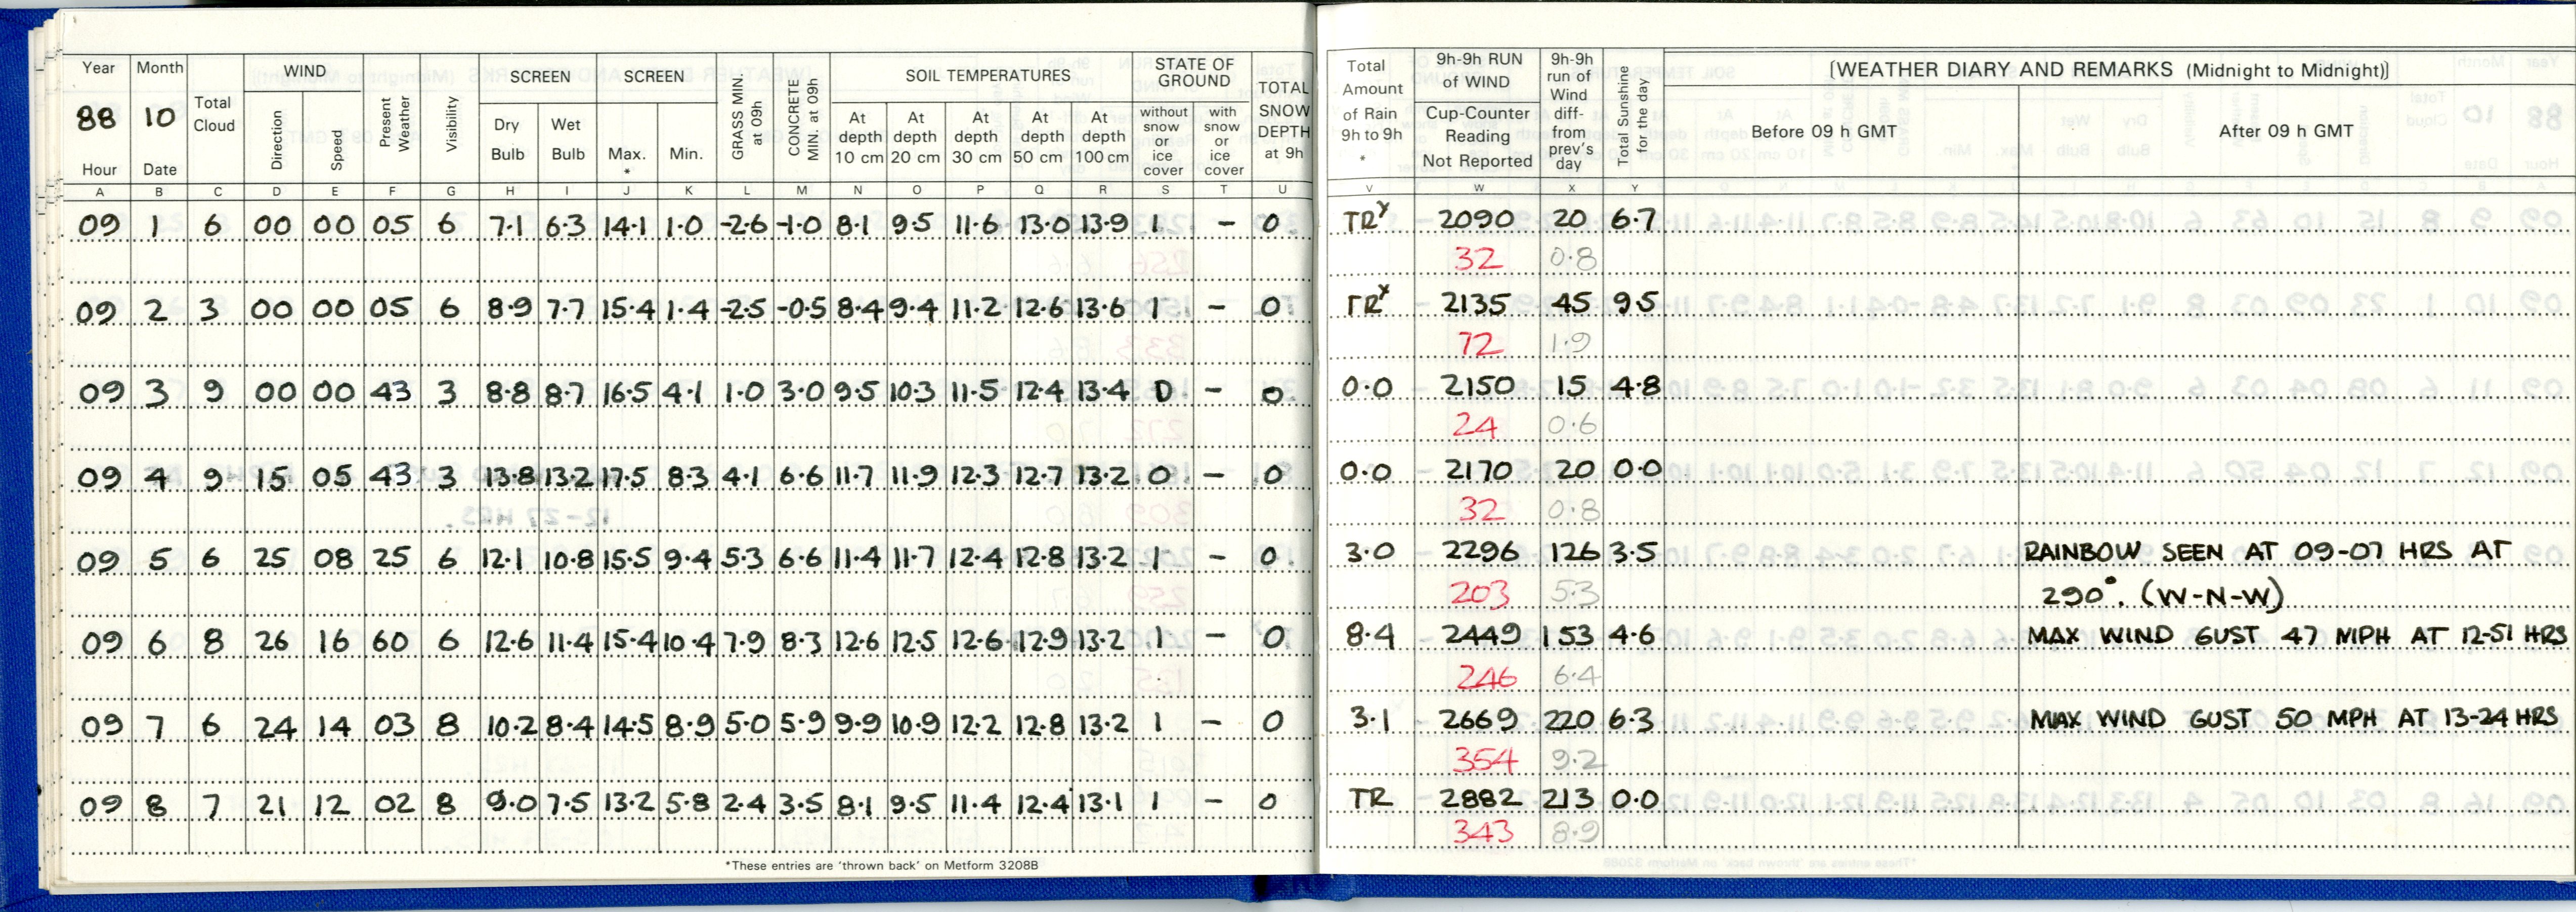 Year Month Total Cloud WIND Present Weather Visibility SCREEN SCREEN GRASS MIN. at 09h CONCRETE MIN at 09h SOIL TEMPERATURES STATE OF GROUND TOTAL SNOW DEPTH at 9h Total Amount of Rain 9h to 9h * 9h-9h RUN of WIND 9h-9h run of Wind diff- from prev's day Total Sunshine for the day [WEATHER DIARY AND REMARKS (Midnight to Midnight)]
88 10 Direction Speed Dry Bulb Wet Bulb Max. * Min. At depth 10 cm At depth 20 cm At depth 30 cm At depth 50 cm At depth 100 cm without snow or ice cover with snow or ice cover Cup-Counter Reading Not Reported Before 09 h GMT After 09 h GMT
Hour Date
A B C D E F G H I J K L M N O P Q R S T U V W X Y
09 1 6 00 00 05 6 7.1 6.3 14.1 1.0 -2.6 -1.0 8.1 9.5 11.6 13.0 13.9 1 - 0 TRY 2090 20 6.7
32 0.8
09 2 3 00 00 05 6 8.9 7.7 15.4 1.4 -2.5 -0.5 8.4 9.4 11.2 12.6 13.6 1 - 0 TRY 2135 45 9.5
72 1.9
09 3 9 00 00 43 3 8.8 8.7 16.5 4.1 1.0 3.0 9.5 10.3 11.5 12.4 13.4 0 - 0 0.0 2150 15 4.8
24 0.6
09 4 9 15 05 43 3 13.8 13.2 17.5 8.3 4.1 6.6 11.7 11.9 12.3 12.7 13.2 0 - 0 0.0 2170 20 0.0
32 0.8
09 5 6 25 08 25 6 12.1 10.8 15.5 9.4 5.3 6.6 11.4 11.7 12.4 12.8 13.2 1 - 0 3.0 2296 126 3.5 RAINBOW SEEN AT 09-07 HRS AT
203 5.3 290°. (W-N-W)
09 6 8 26 16 60 6 12.6 11.4 15.4 10.4 7.9 8.3 12.6 12.5 12.6 12.9 13.2 1 - 0 8.4 2449 153 4.6 MAX WIND GUST 47 MPH AT 12-51 HRS
246 6.4
09 7 6 24 14 03 8 10.2 8.4 14.5 8.9 5.0 5.9 9.9 10.9 12.2 12.8 13.2 1 - 0 3.1 2669 220 6.3 MAX WIND GUST 50 MPH AT 13-24 HRS
354 9.2
09 8 7 21 12 02 8 9.0 7.5 13.2 5.8 2.4 3.5 8.1 9.5 11.4 12.4 13.1 1 - 0 TR 2882 213 0.0
343 8.9
*These entries are 'thrown back' on Metform 3208B